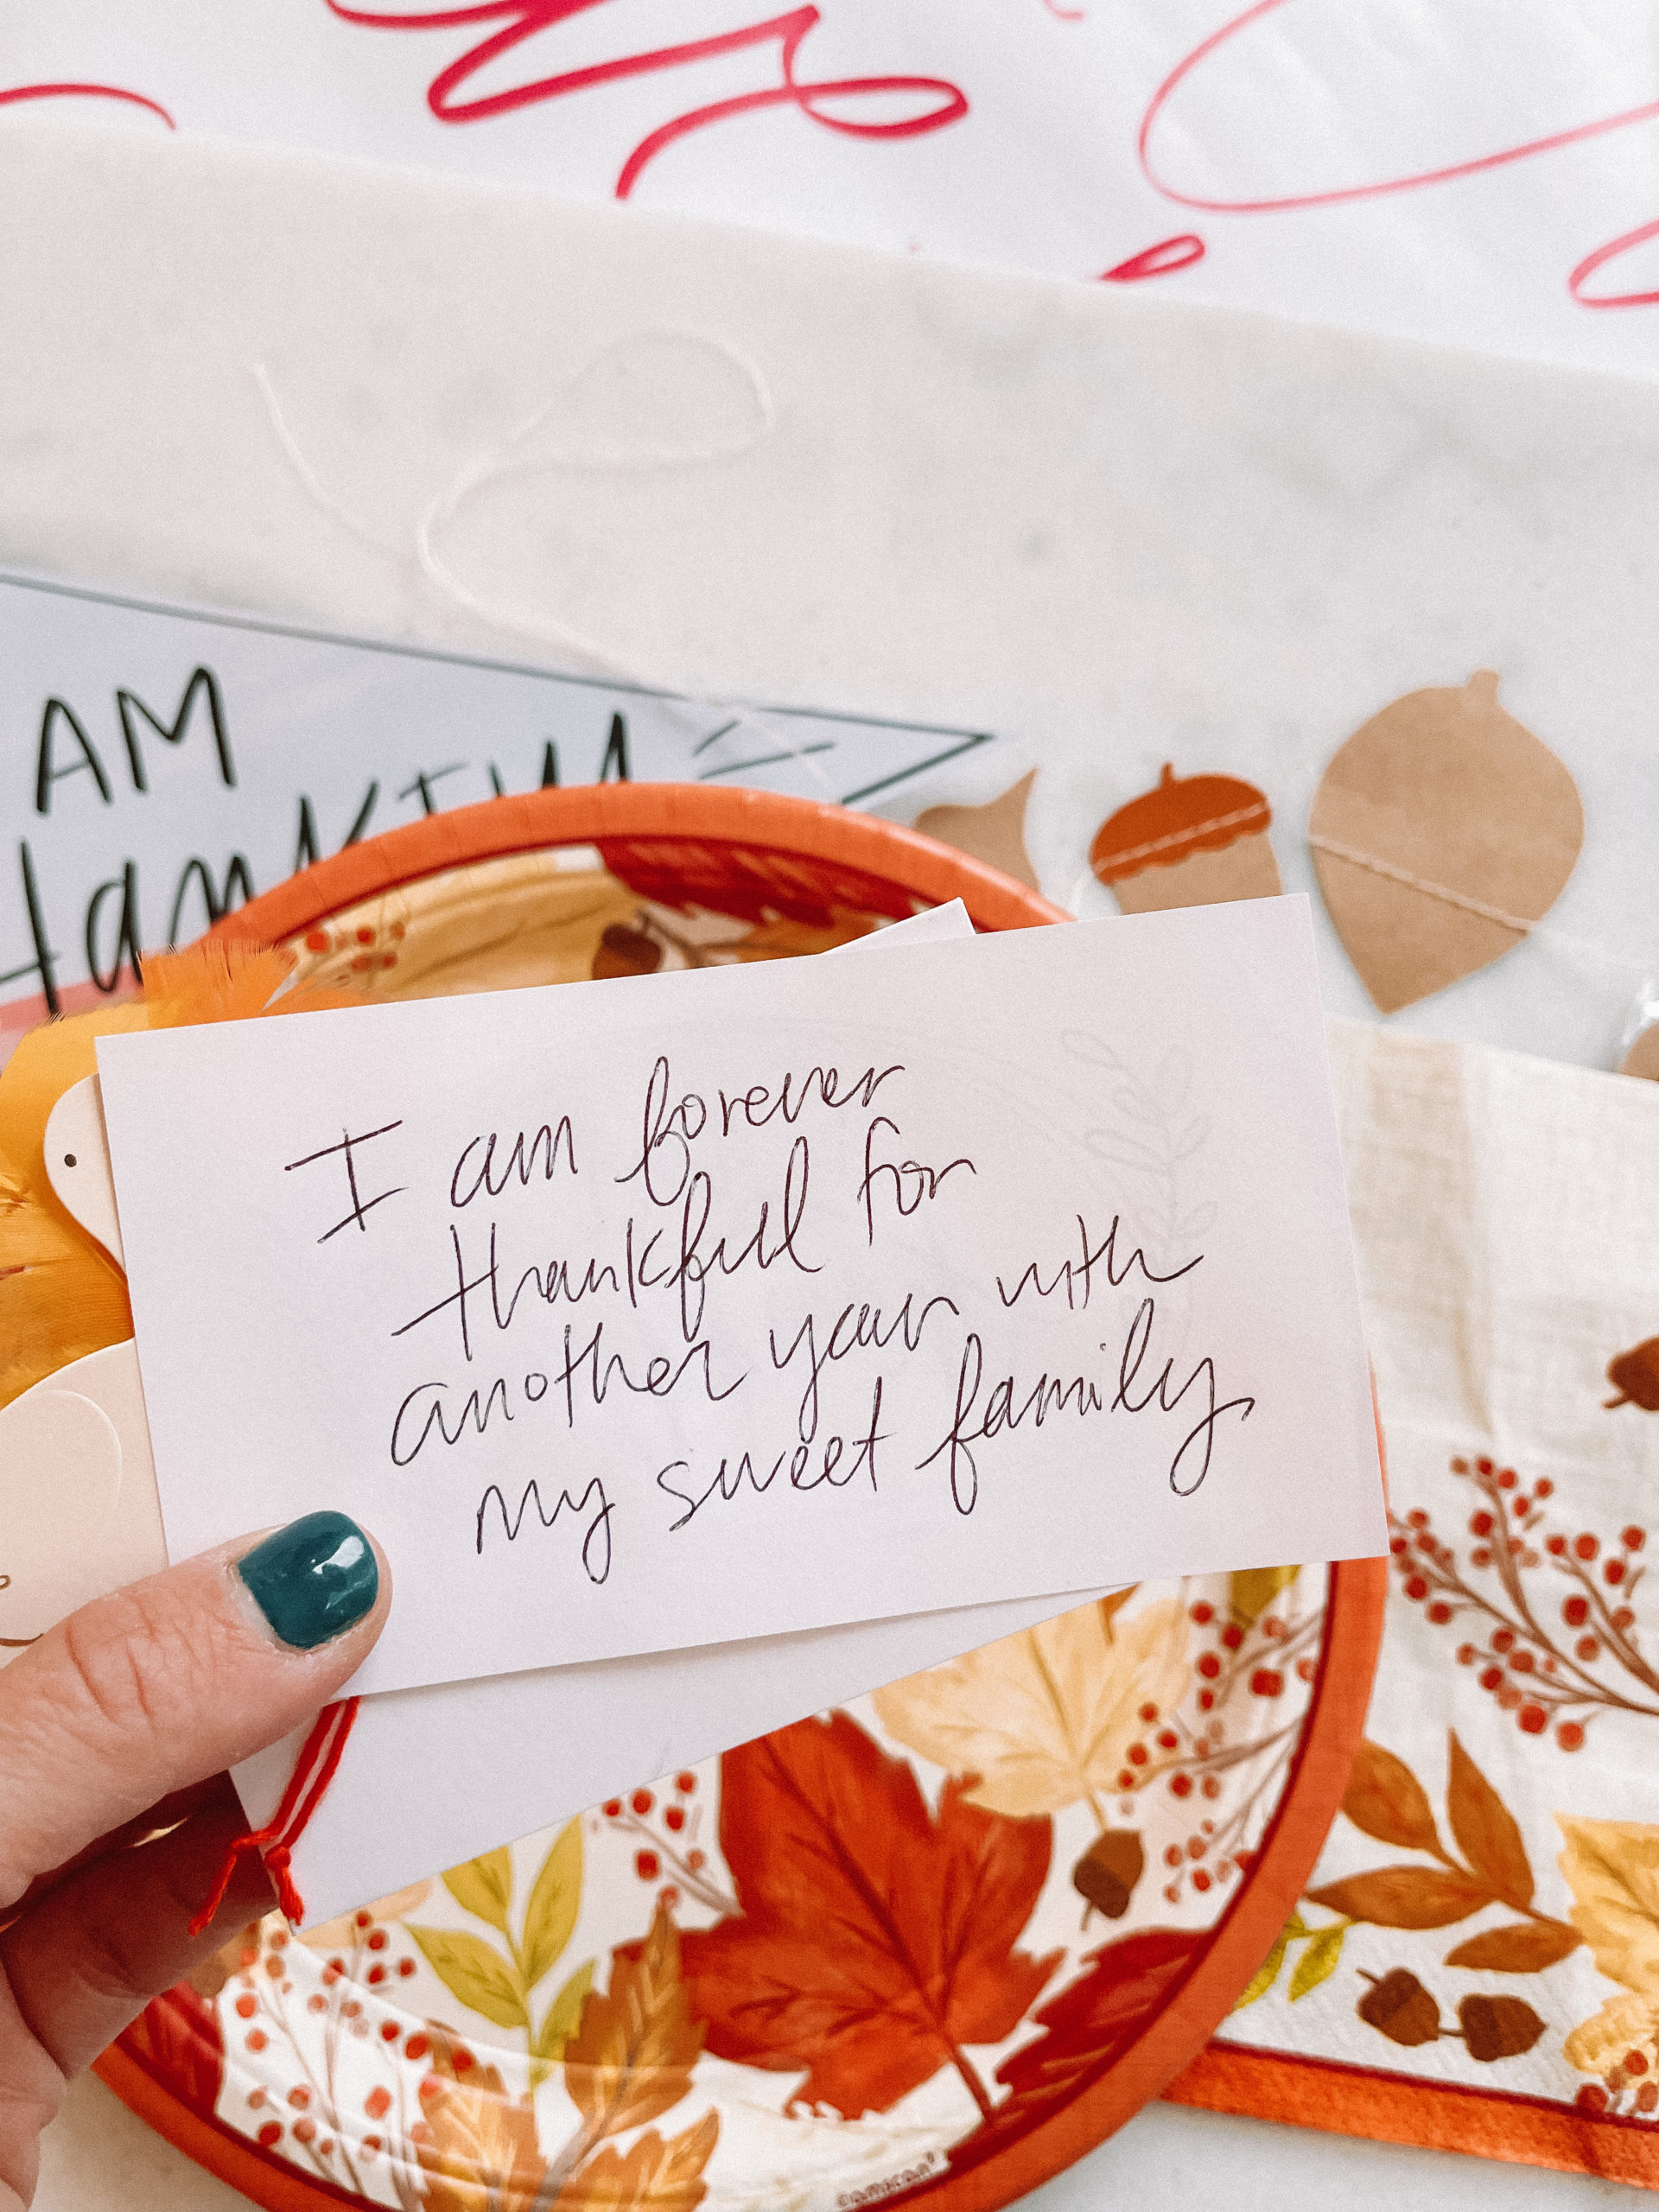 AM
I am forever
thankful for
another year with
my sweet family